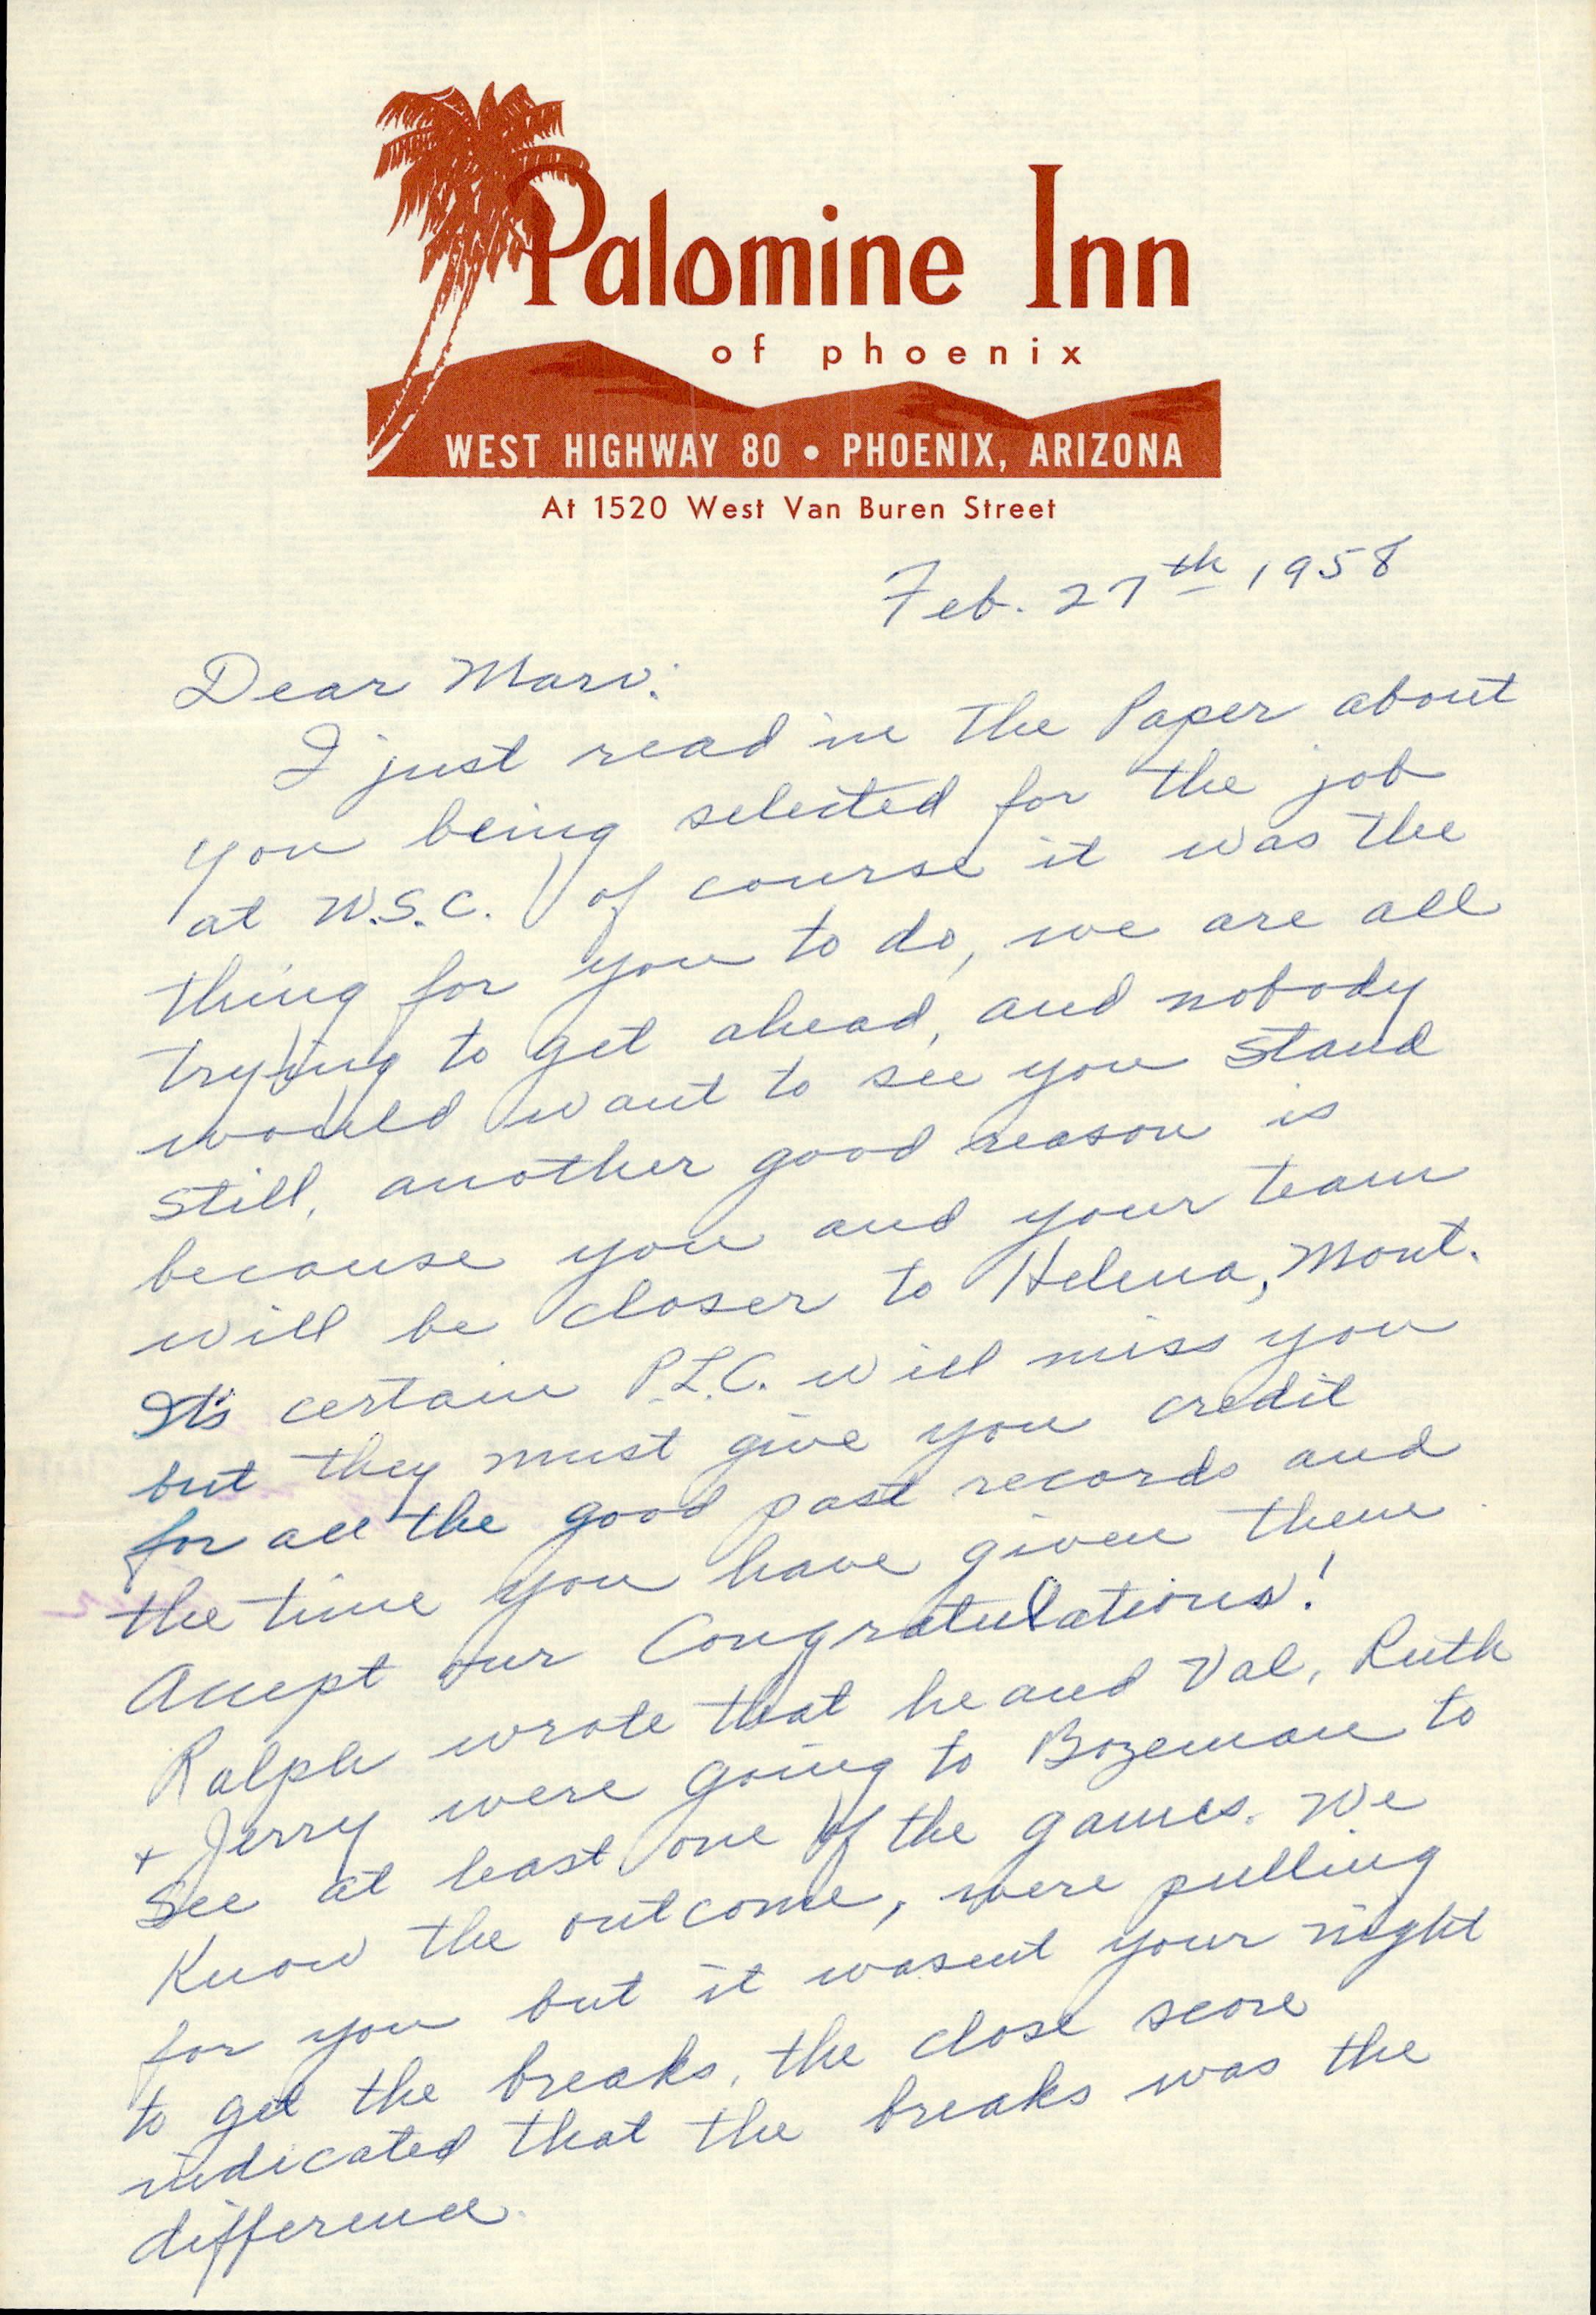 Palomine Inn
of phoenix
WEST HIGHWAY 80 • PHOENIX, ARIZONA
At 1520 West Van Buren Street
Feb. 27th 1958
Dear Marv:
I just read in the Paper about
you being selected for the job
at W.S.C. of course it was the
thing for you to do, we are all
trying to get ahead, and nobody
would want to see you stand
still, another good reason is
because you and your team
will be closer to Helena, Mont.
It's certain P.L.C. will miss you
but they must give you credit
for all the good past records and
the time you have given them
Accept our Congratulations!
Ralph wrote that he and Val, Ruth
+ Jerry were going to Bozeman to
see at least one of the games. We
Know the outcome, were pulling
for you but it wasent your night
to get the breaks, the close score
indicated that the breaks was the
difference.